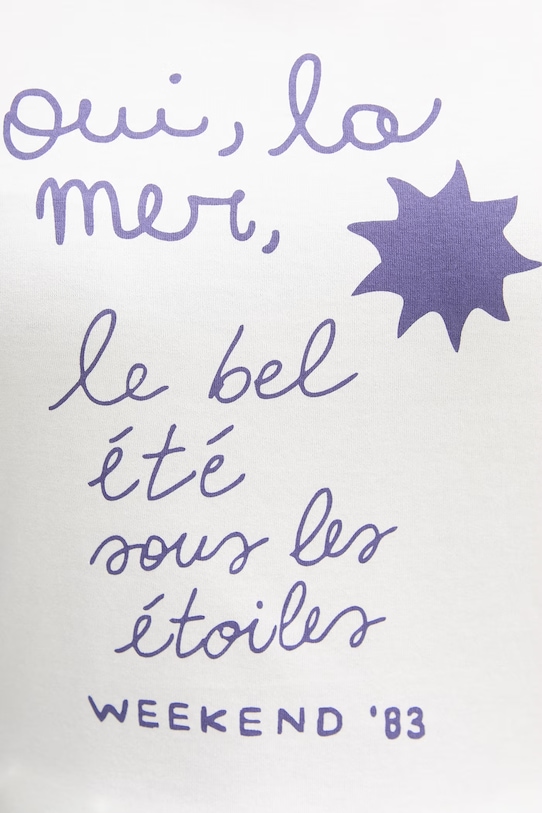 oui, la
mer,
le bel
été
sous les
étoiles
WEEKEND '83